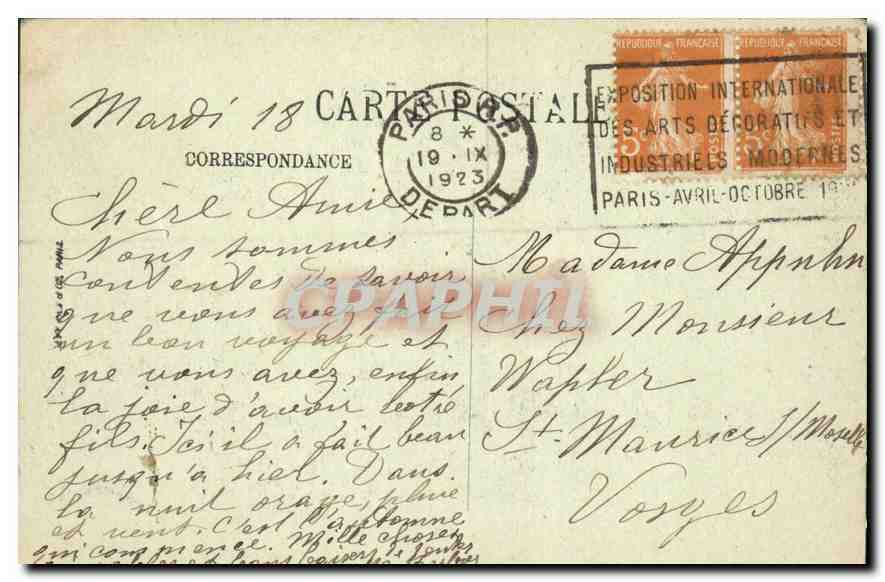 Mardi 18
CARTE POSTALE
CORRESPONDANCE
PARIS R.P.
8 *
19 · IX
1923
DEPART
REPUBLIQUE FRANÇAISE
REPUBLIQUE FRANÇAISE
EXPOSITION INTERNATIONALE
DES ARTS DÉCORATIFS ET
INDUSTRIELS MODERNES
PARIS-AVRIL-OCTOBRE 19
Chère Amie
Nous sommes
contentes de savoir
que vous avez fait
un bon voyage et
que vous avez, enfin
la joie d'avoir votre
fils. Ici il a fait beau
jusqu'a hier. Dans
la nuit orage, pluie
et vent. c'est l'automne
qui commence. Mille choses
et bons baisers de toutes
Madame
Chez Monsieur
Wapler
St. Maurice s/Moselle
Vosges
CPAPHIL